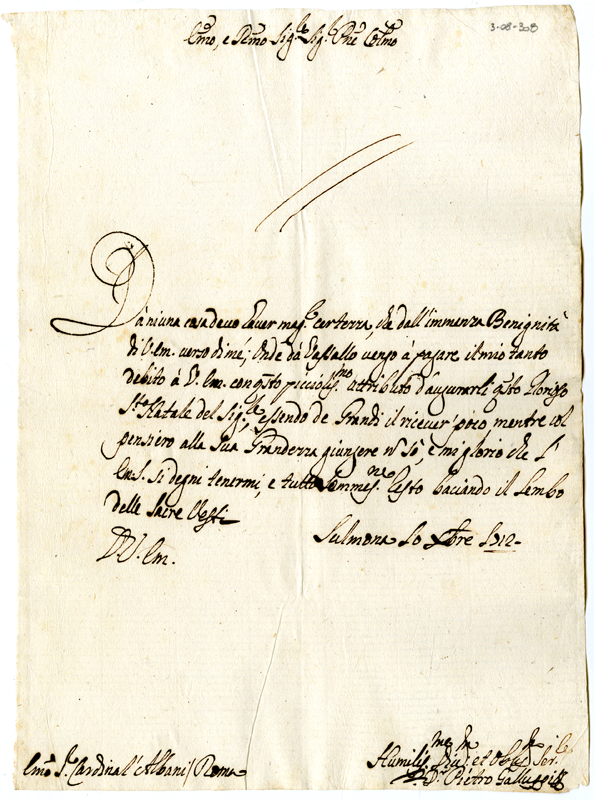 3-08-308
Emo, e Rmo Sig.re Sig.re Pñe Colmo
Da niuna cosa devo haver mag.re certezza, che dall'immenza Benignità
di V. Em. verso di mé; Onde dà Vassallo vengo à pagare il mio tanto
debito à V. Em. con q̃sto picciolis.mo attributo d'augurarli q̃sto
S.to Natale del Sig.re, essendo de Grandi il ricever' poco mentre col
pensiero alla Sua Grandezza giungere nõ sò, e mi glorio che l'
Em. S. si degni tenermi, e tutto Resto baciando il Lembo
delle Sacre Vesti
D. V. Em.
Sulmona 10 Xbre 1712
Emo S.r Cardinal' Albani / Roma
Humilis.mo Div.mo et Ser.re
D. Pietro Galluppi